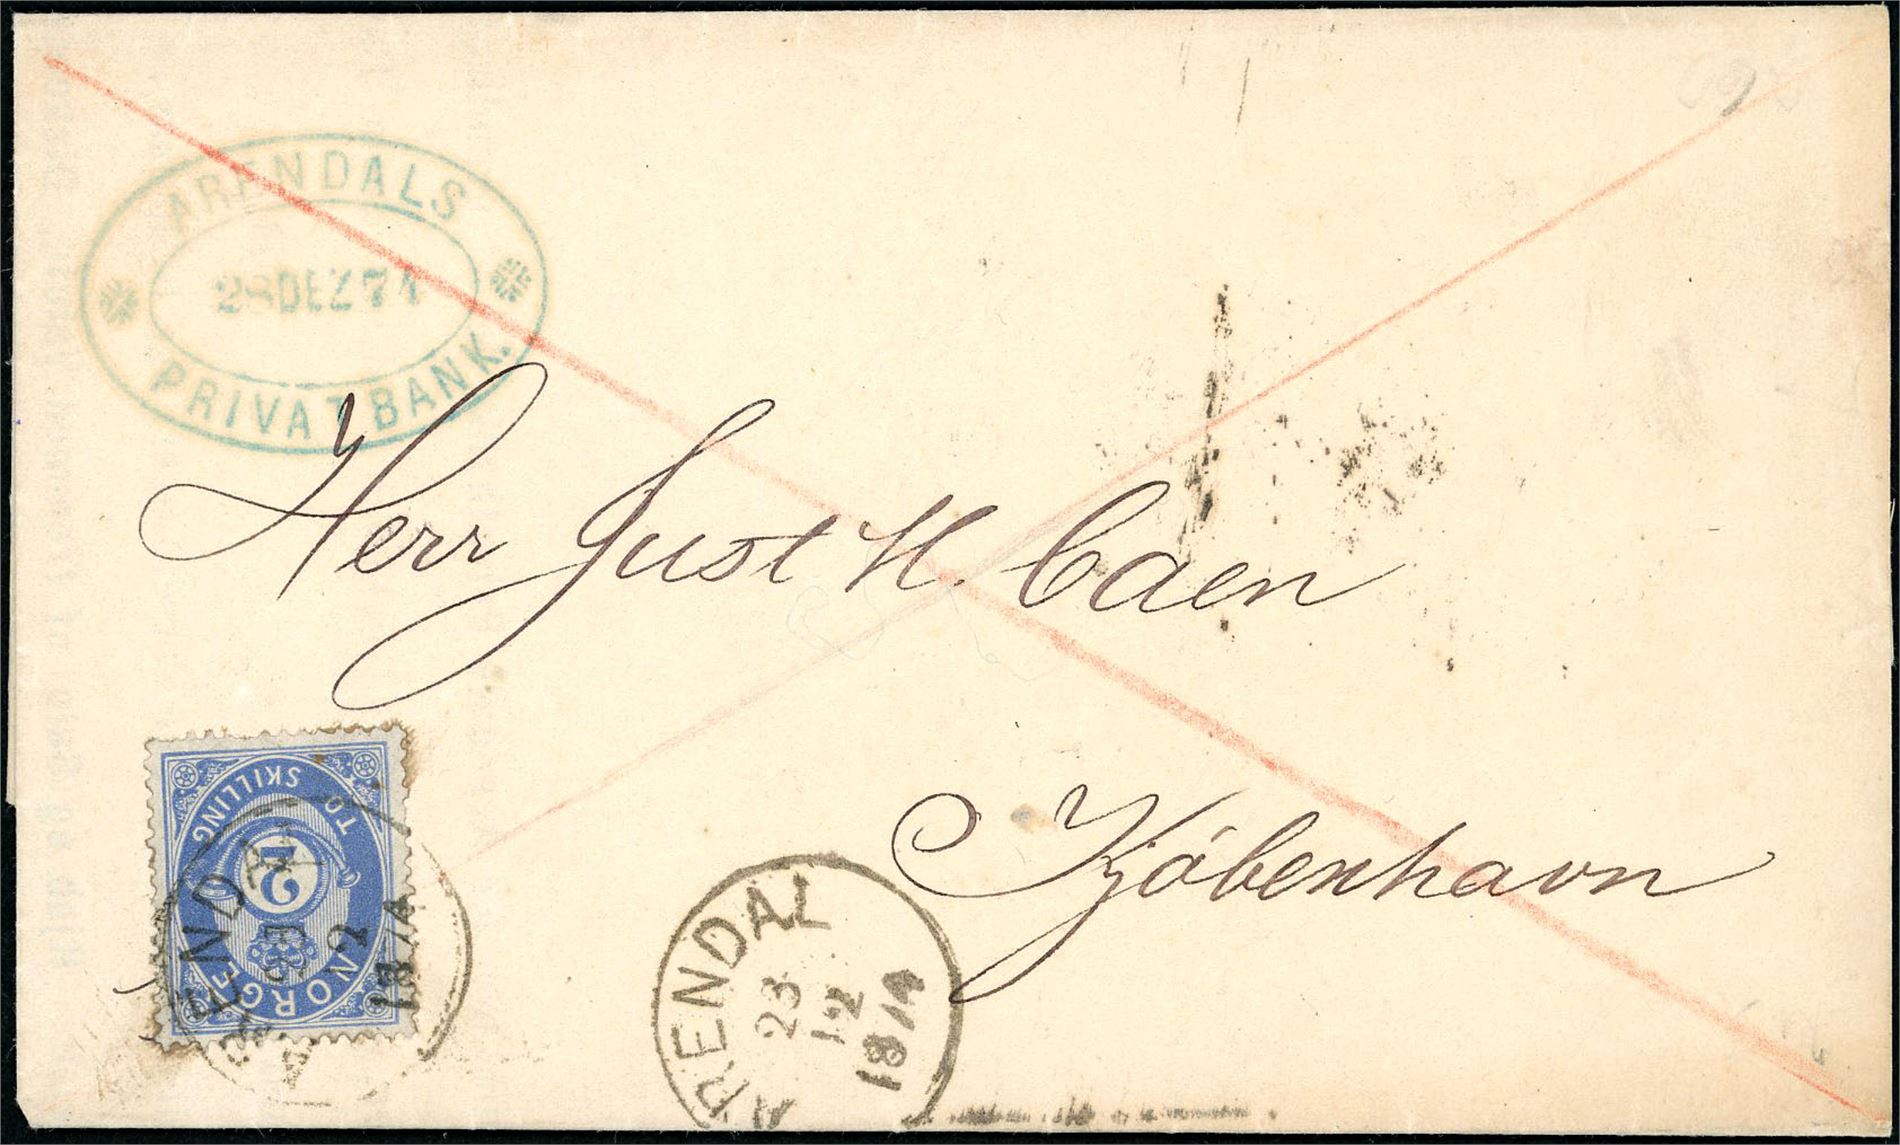 ARENDALS
28 DEZ 74
PRIVATBANK.
Herr Just H. Caen
Kjøbenhavn
NORGE
2
TO SKILLING
ARENDAL
12
ARENDAL
23
12